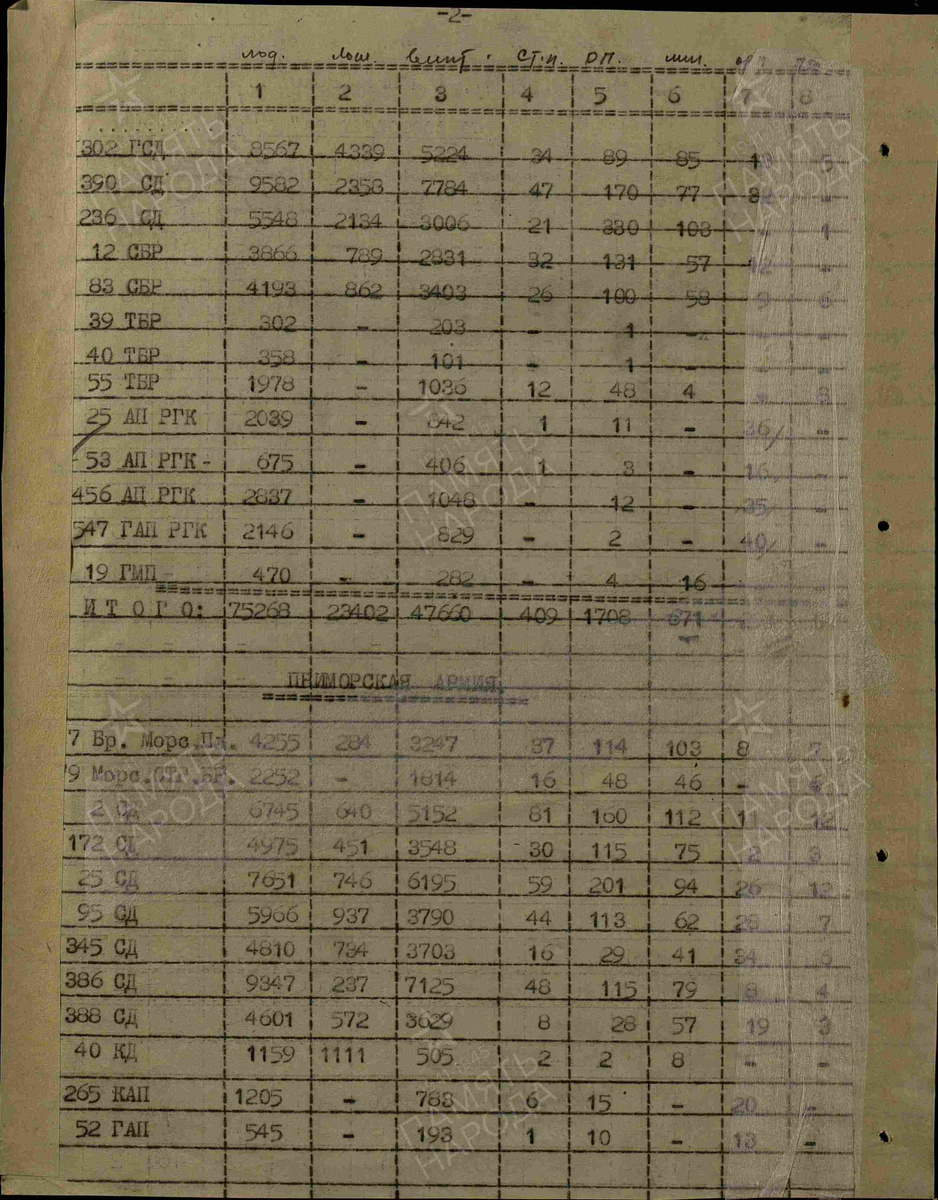 -2-
люд. лош. винт. ст.п. оп. мин.
1 2 3 4 5 6 7 8
302 ГСД 8567 4339 5224 34 89 85 5
390 СД 9582 2358 7784 47 170 77 -
236 СД 5548 2134 3006 21 330 103 - 1
12 СБР 3866 789 2331 32 131 57 12 -
83 СБР 4193 862 3403 26 100 58 9 6
39 ТБР 302 - 203 - 1 - - -
40 ТБР 358 - 101 - 1 - - -
55 ТБР 1978 - 1036 12 48 4 - 8
25 АП РГК 2039 - 842 1 11 - 36/ -
53 АП РГК- 675 - 406 1 3 - 16 -
456 АП РГК 2837 - 1048 - 12 - 35/ -
547 ГАП РГК 2146 - 829 - 2 - 40/ -
19 ГМП- 470 - 282 - 4 16
И Т О Г О: 75268 23402 47660 409 1708 671
ПРИМОРСКАЯ АРМИЯ.
7 Бр. Морс.Пх. 4255 284 3247 37 114 103 8 7
9 Морс.СТР.БР. 2252 - 1814 16 48 46 - 6
2 СД 6745 640 5152 81 160 112 11 12
172 СД 4975 451 3548 30 115 75 2 3
25 СД 7651 746 6195 59 201 94 26 12
95 СД 5966 937 3790 44 113 62 28 7
345 СД 4810 734 3703 16 29 41 34 6
386 СД 9347 237 7125 48 115 79 8 4
388 СД 4601 572 3629 8 28 57 19 3
40 КД 1159 1111 505 2 2 8 - -
265 КАП 1205 - 783 6 15 - 20 -
52 ГАП 545 - 193 1 10 - 13 -
ПАМЯТЬ НАРОДА